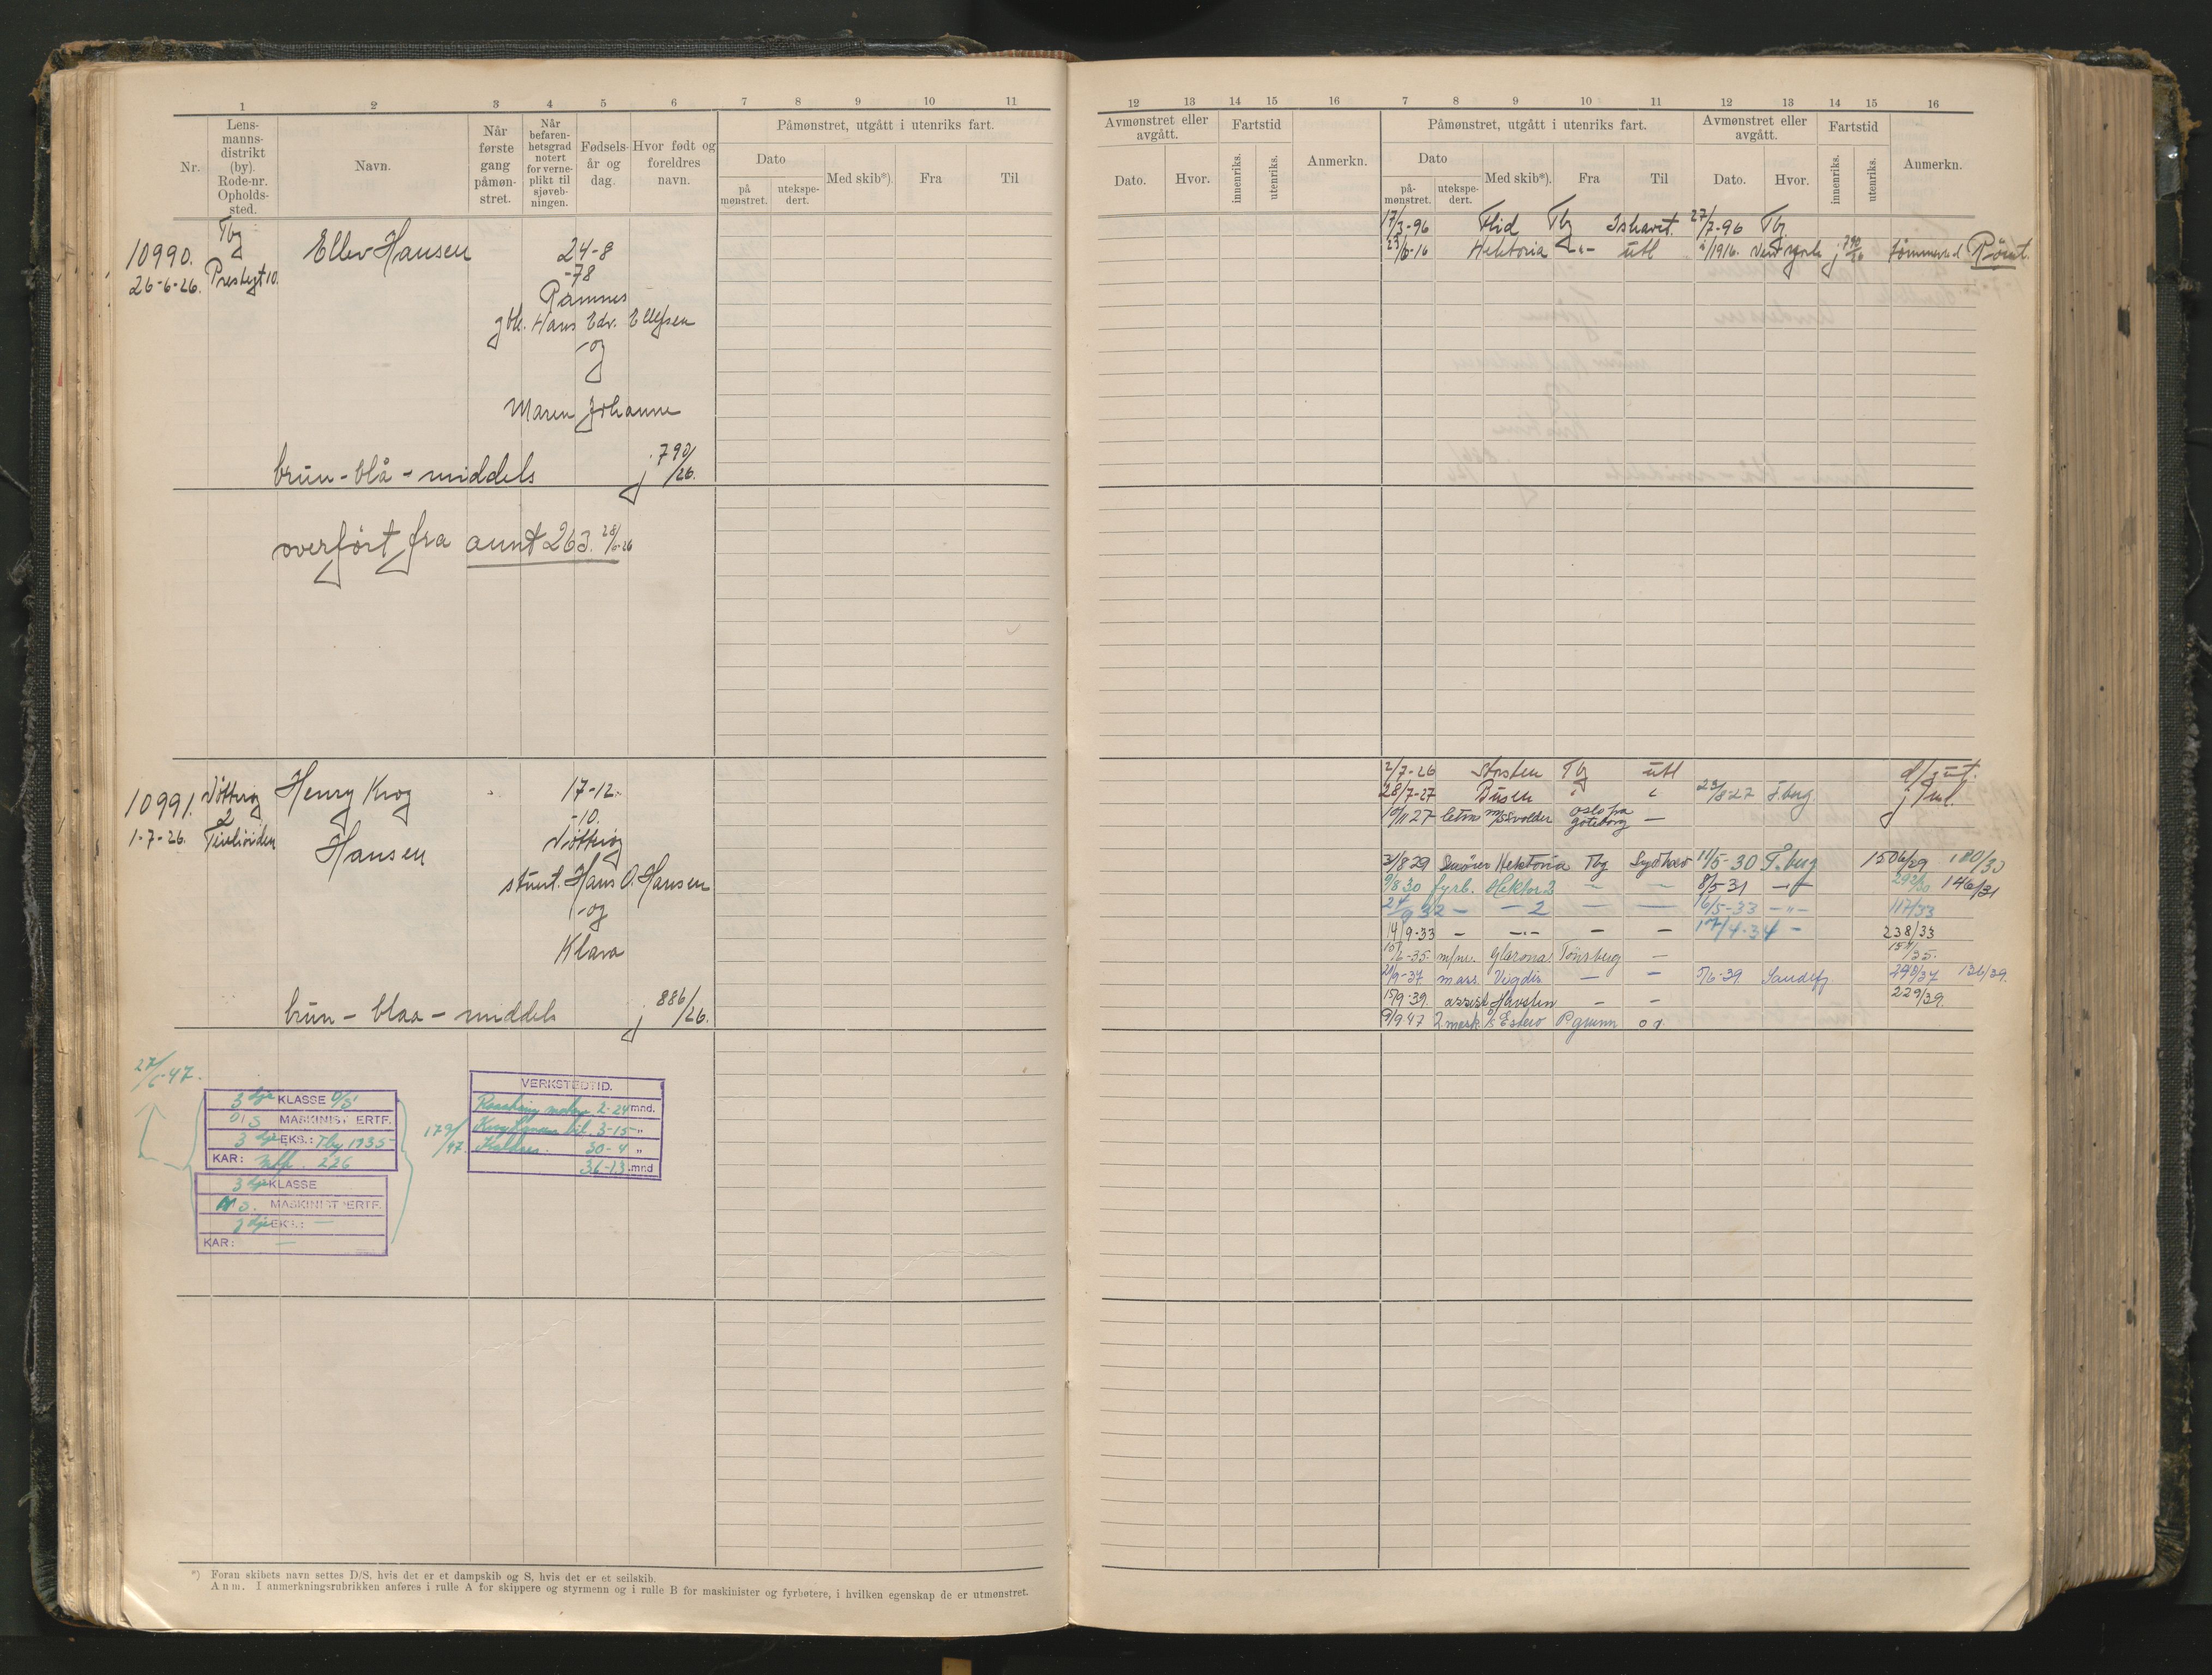 1 2 3 4 5 6 7 8 9 10 11
Nr.
Lens-
manns-
distrikt
(by).
Rode-nr.
Opholds-
sted.
Navn.
Når
første
gang
påmøn-
stret.
Når
befaren-
hetsgrad
notert
for verne-
plikt til
sjøveb-
ningen.
Fødsels-
år og
dag.
Hvor født og
foreldres
navn.
Påmønstret, utgått i utenriks fart.
Dato
på
mønstret.
utekspe-
dert.
Med skib*).
Fra
Til
Tbg
10990. Ellev Hansen 24-8
26-6-26. Prestegt 10. -78
Ramnes
gbr. Hans Edv. Ellefsen
-og
Maren Johanne
brun - blå - middels j. 790/26.
overført fra annt 263.
10991. Nøtterøy Henry Krog 17-12-
2 -10.
1-7-26. Hansen Nøtterøy
Hans O. Hansen
-og
Klara
brun - blaa - middels j 886/26.
27/6-47.
3dje KLASSE
D/S MASKINIST ERTF.
3dje EKS.: Tbg 1935
KAR: 226
179/47.
VERKSTEDTID.
2-24 mnd.
3-15 "
Kaldnes. 30-4 "
36-13 mnd
3dje KLASSE
M/S. MASKINIST ERTF.
3dje EKS.: —
KAR: —
*) Foran skibets navn settes D/S, hvis det er et dampskib og S, hvis det er et seilskib.
Anm. I anmerkningsrubrikken anføres i rulle A for skippere og styrmenn og i rulle B for maskinister og fyrbøtere, i hvilken egenskap de er utmønstret.
12 13 14 15 16 7 8 9 10 11 12 13 14 15 16
Avmønstret eller
avgått.
Dato.
Hvor.
Fartstid
innenriks.
utenriks.
Anmerkn.
Påmønstret, utgått i utenriks fart.
Dato
på-
mønstret.
utekspe-
dert.
Med skib*).
Fra
Til
Avmønstret eller
avgått.
Dato.
Hvor.
Fartstid
innenriks.
utenriks.
Anmerkn.
17/3-96 Flid Tbg Ishavet. 27/7-96 Tbg.
23/6-16 Hektoria -"- utl 1916. j 790/26 tømmermd Rømt.
2/7-26 Storsten Tbg utl
28/7-27 Busen " " 23/8-27 Tberg.
10/11 27 m/s Svolder Oslo fra
Göteborg —
31/8 29 Hektoria Tbg Sydhav 11/5-30 Tberg 1506/29 180/30
9/8 30 fyrb. Hektor 2 — — 8/5-31 -"- 292/30 146/31
24/9 32 — — 2 — — 16/5-33 -"- 117/33
14/9-33 — -"- — — 17/4-34 — 238/33
Glarona Tønsberg — 157/35.
21/9-37. mass. Vigdis — — 5/6-39. Sandefj 298/37 136/39.
15/9-39. assist Havsten — — 229/39.
9/9 47 2. mask. Estero P. grunn